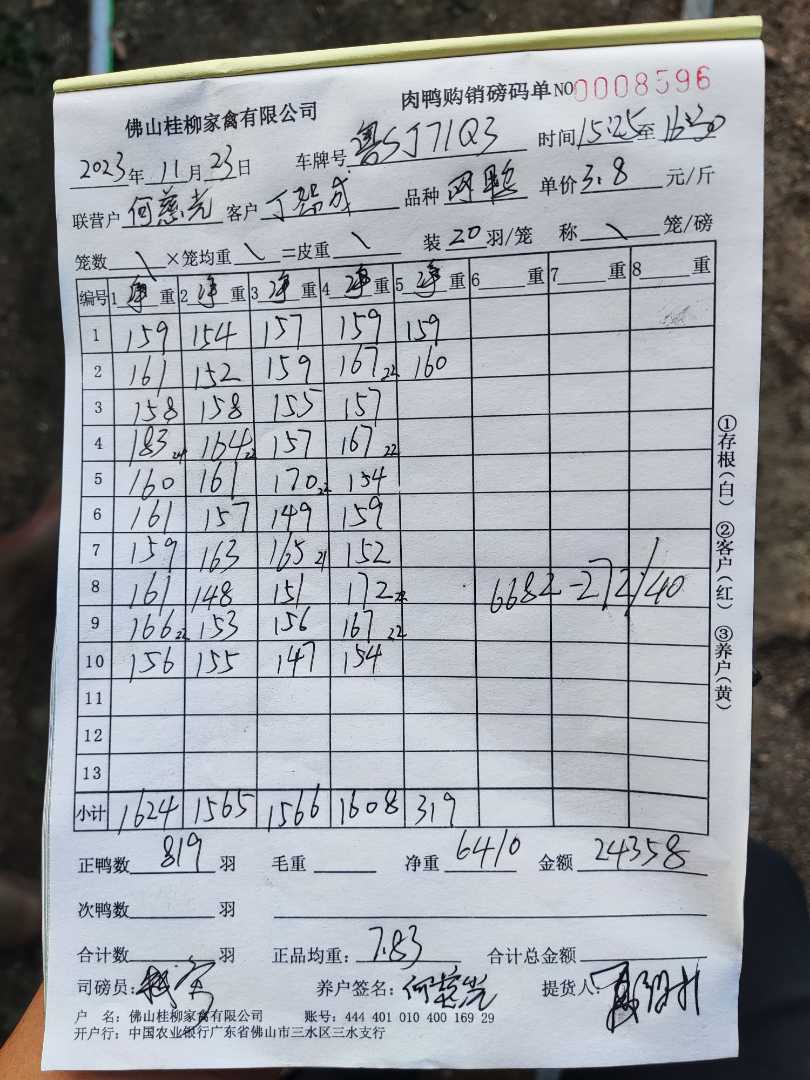 佛山桂柳家禽有限公司 肉鸭购销磅码单 NO 0008596
2023年 11月 23日 车牌号 粤SJ71Q3 时间 15:25 至 16:30
联营户 何慈光 客户 丁 成 品种 单价 3.8 元/斤
笼数 \ ×笼均重 \ =皮重 \ 装 20 羽/笼 称 \ 笼/磅
编号 1 净 重 2 净 重 3 净 重 4 净 重 5 净 重 6 重 7 重 8 重
1 159 154 157 159 159
2 161 152 159 167 22 160
3 158 158 155 157
4 183 24 164 22 157 167 22
5 160 161 170 22 154
6 161 157 149 159
7 159 163 165 21 152
8 161 148 151 172 22 6682-272/40
9 166 22 153 156 167 22
10 156 155 147 154
11
12
13
小计 1624 1565 1566 1608 319
①存根(白) ②客户(红) ③养户(黄)
正鸭数 819 羽 毛重 净重 6410 金额 24358
次鸭数 羽
合计数 羽 正品均重: 7.83 合计总金额
司磅员: 养户签名: 何慈光 提货人:
户 名: 佛山桂柳家禽有限公司 账号: 444 401 010 400 169 29
开户行: 中国农业银行广东省佛山市三水区三水支行